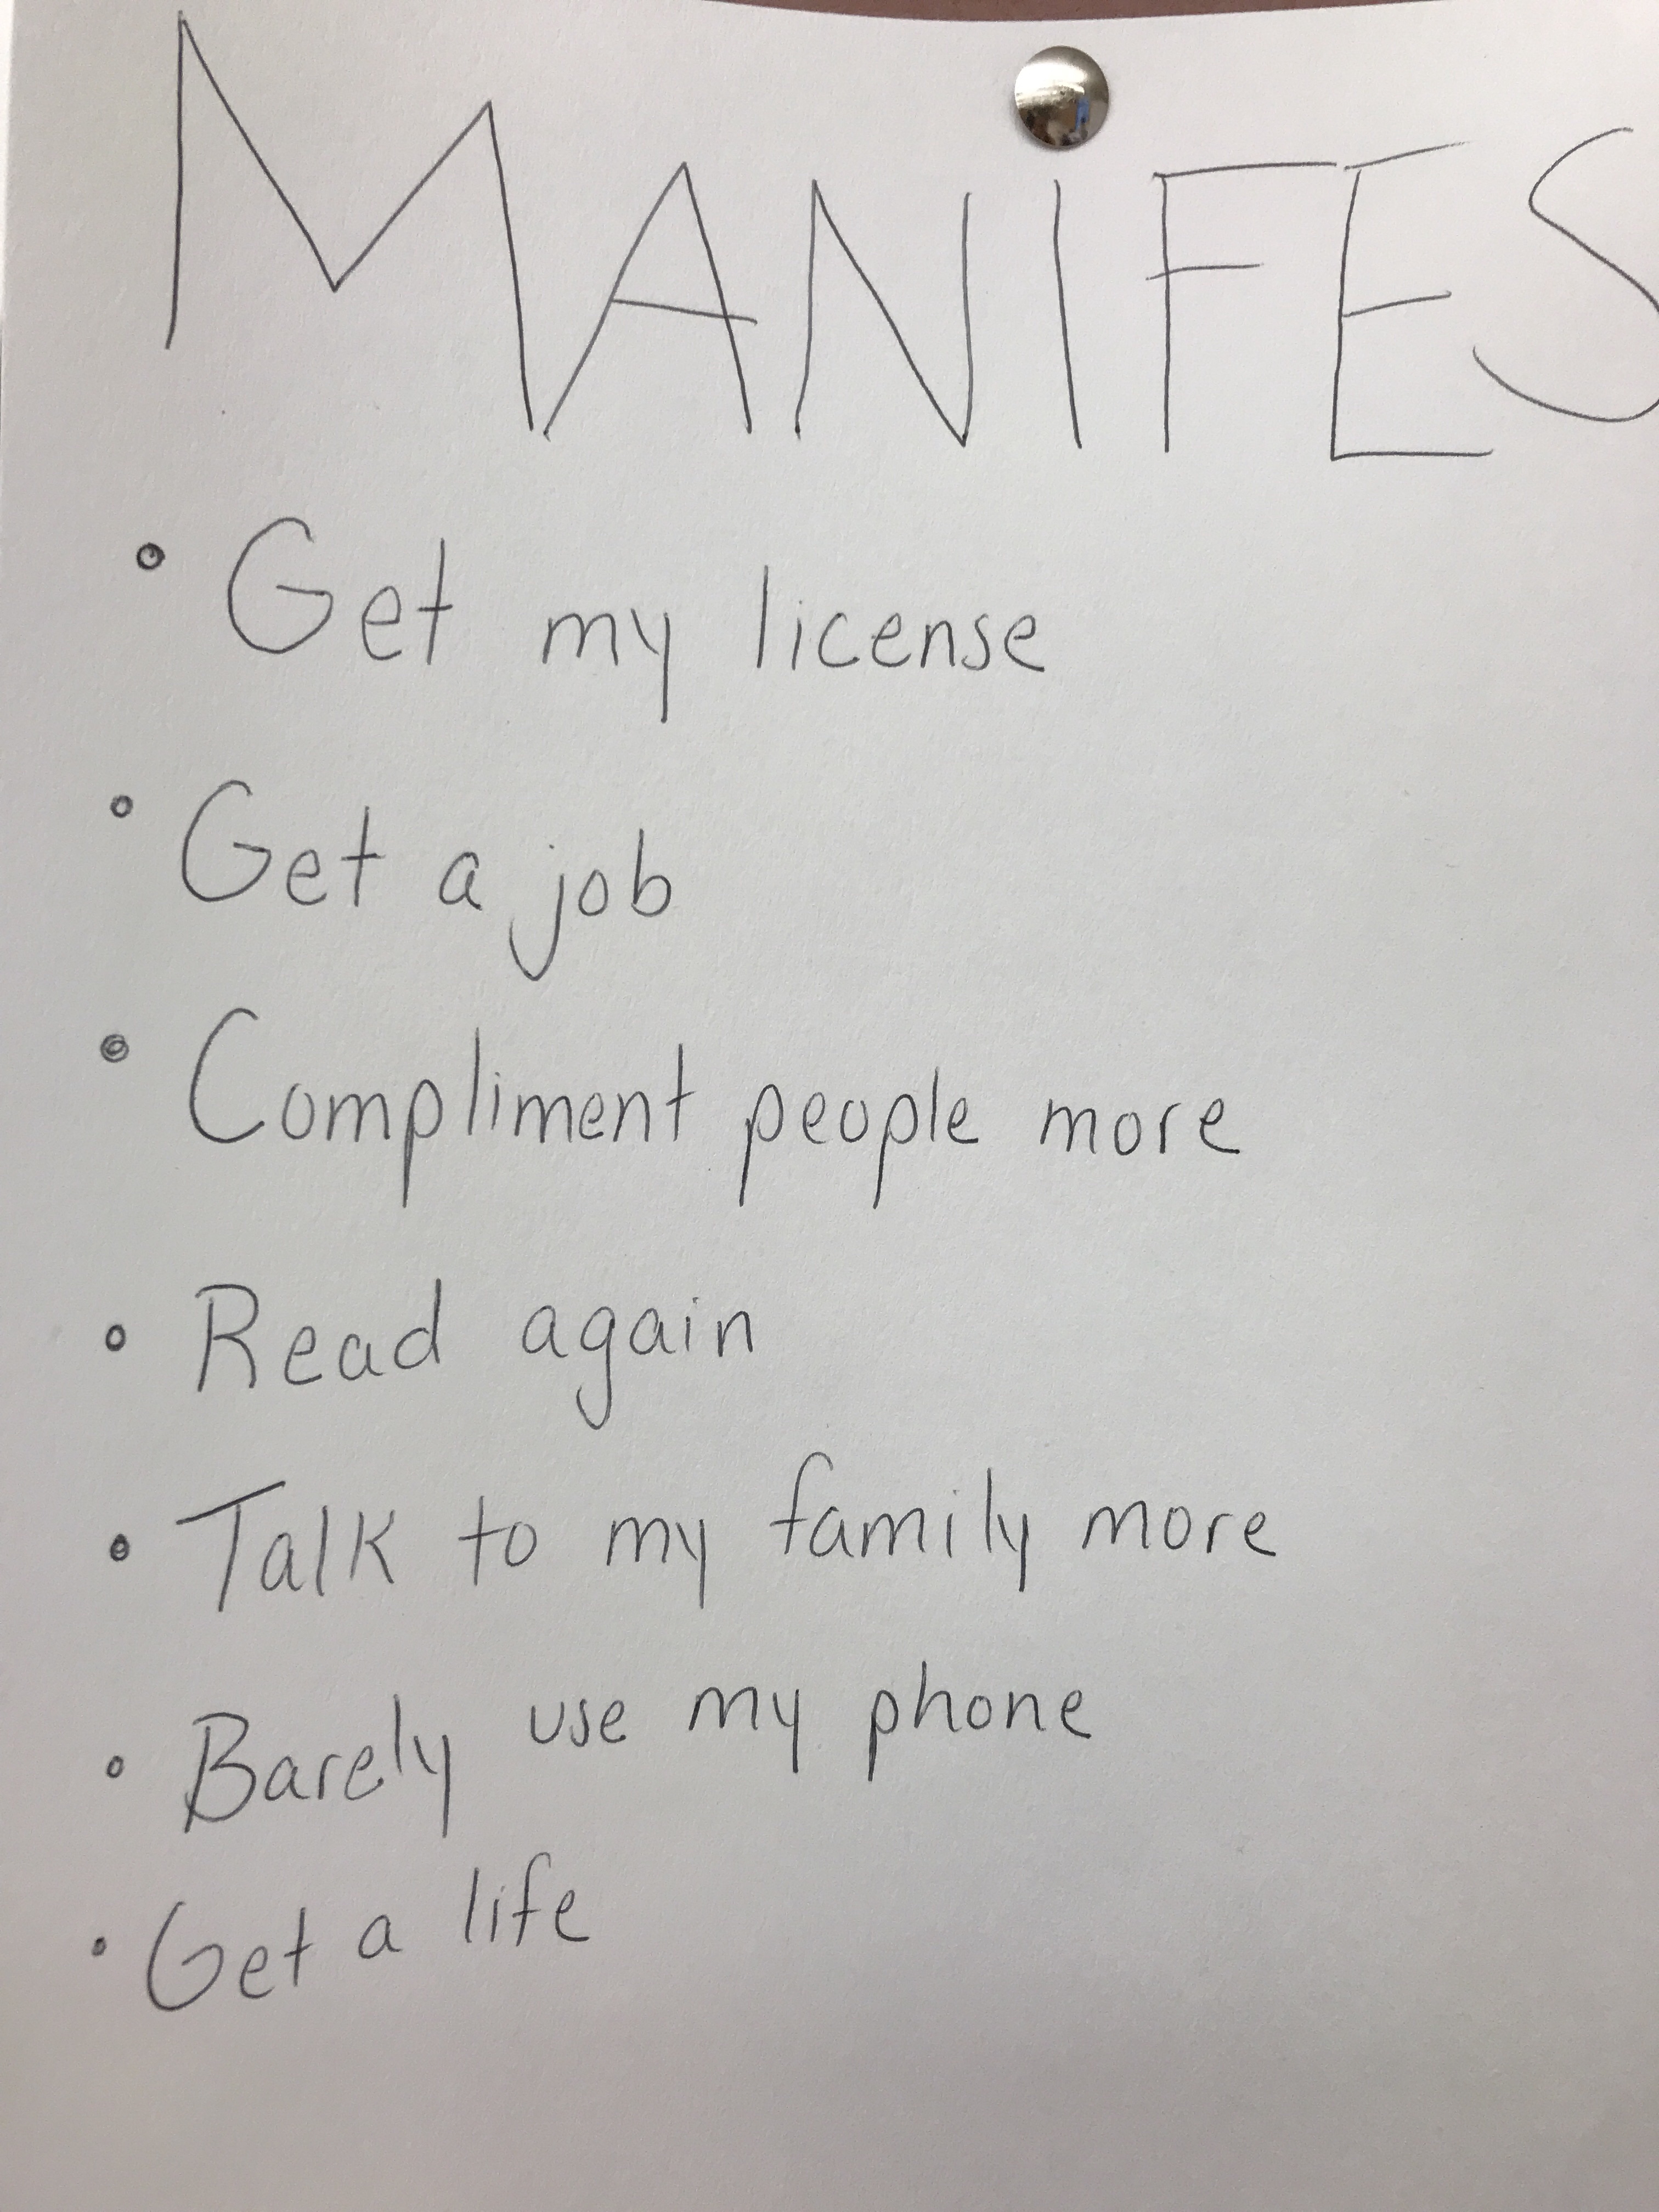 MANiFES
• Get my license
• Get a job
• Compliment people more
• Read again
• Talk to my family more
• Barely use my phone
• Get a life